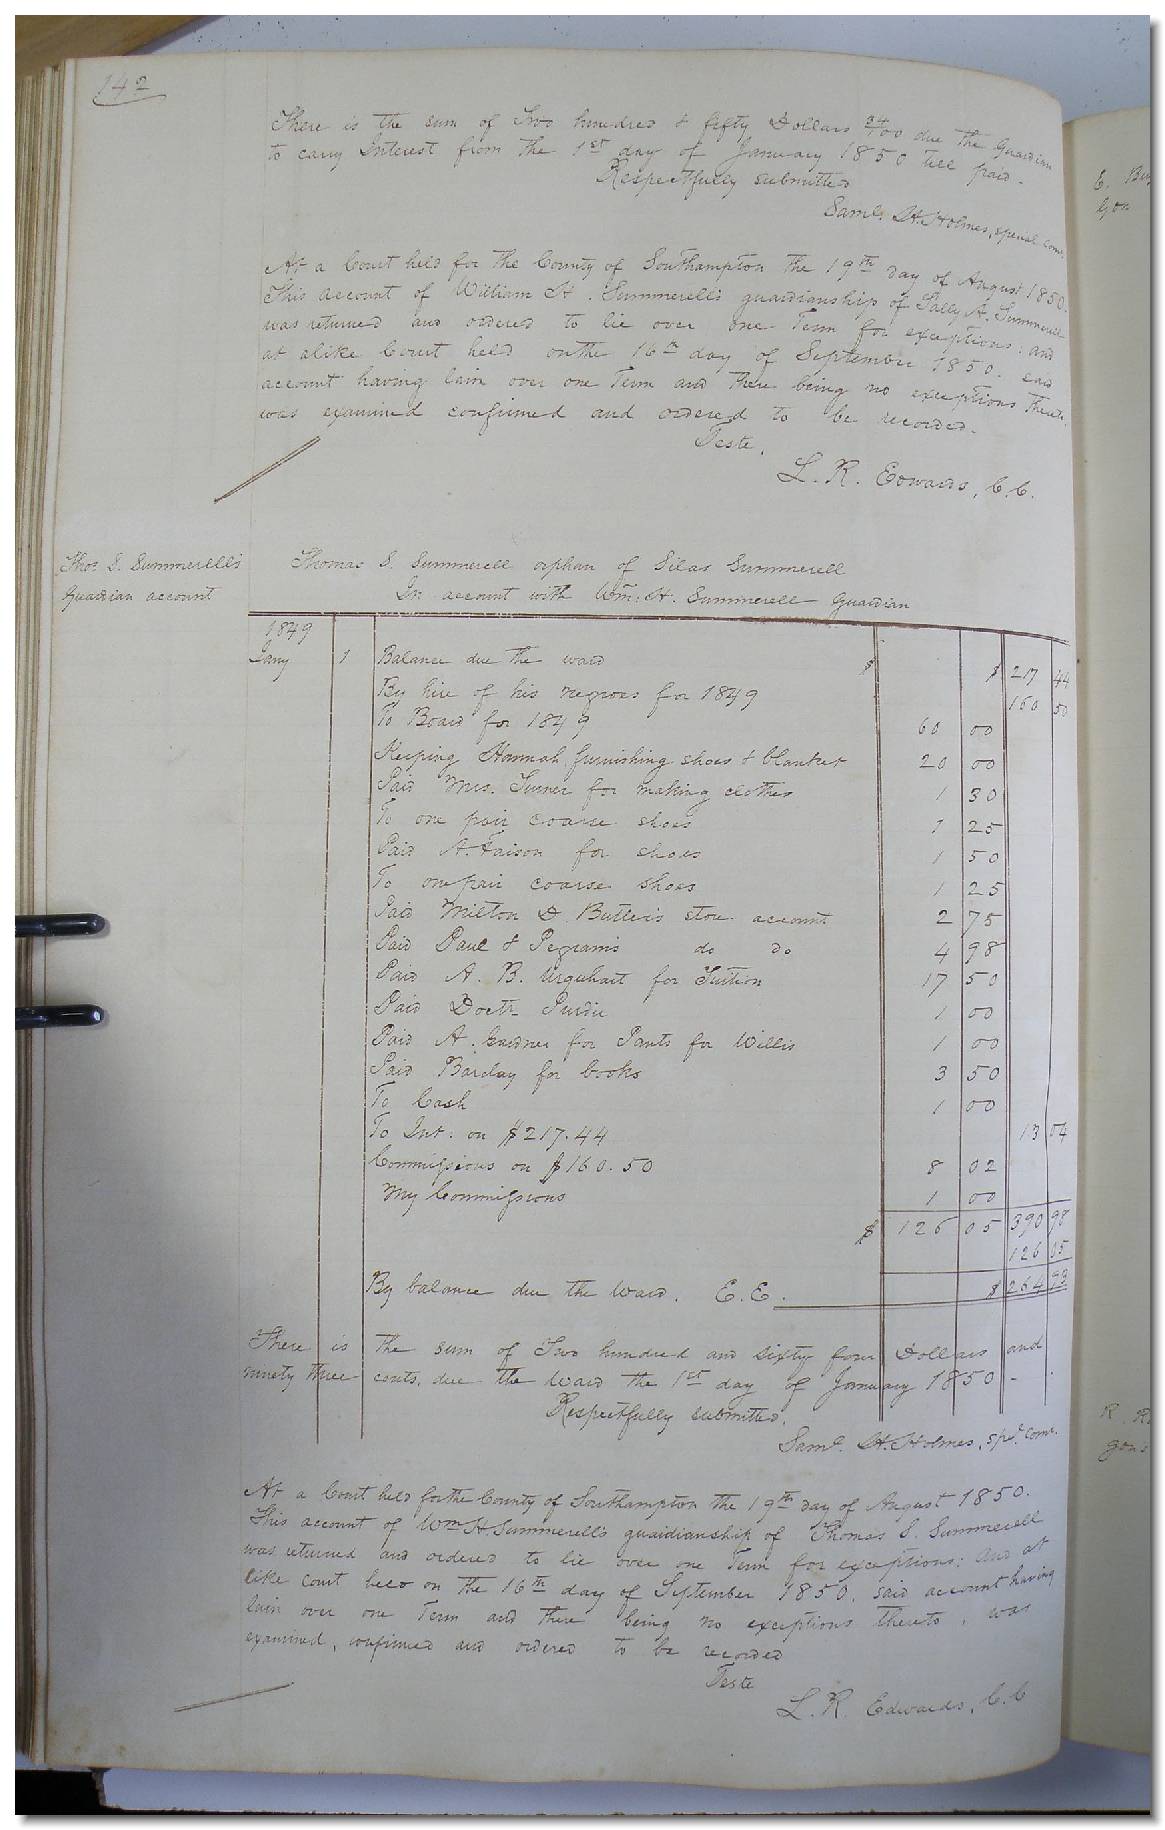 142
There is the sum of Two hundred & fifty Dollars 34/100 due the Guardian
to carry Interest from the 1st day of January 1850 till paid.
Respectfully submitted
Saml. H. Holmes, special com.
At a Court held for the County of Southampton the 19th day of August 1850.
This account of William H. Summerell's guardianship of Sally A. Summerell
was returned and ordered to lie over one Term for exceptions; and
at alike Court held on the 16th day of September 1850. said
account having lain over one Term and there being no exceptions thereto,
was examined confirmed and ordered to be recorded.
Teste,
L. R. Edwards, C.C.
Thos. S. Summerell's
Guardian account
Thomas S. Summerell orphan of Silas Summerell
In account with Wm. H. Summerell Guardian
1849
Jany 1 Balance due the ward $ $ 217 44
By hire of his negroes for 1849 160 50
To Board for 1849 60 00
Keeping Hannah, furnishing shoes & blanket 20 00
Paid Mrs. Turner for making clothes 1 30
To one pair coarse shoes 1 25
Paid A. Faison for shoes 1 50
To one pair coarse shoes 1 25
Paid Milton & Butler's store account 2 75
Paid Paul & Pegram's do do 4 98
Paid A. B. Urquhart for Tuition 17 50
Paid Doctr. Purdie 1 00
Paid A. Gardner for Pants for Willis 1 00
Paid Barclay for books 3 50
To Cash 1 00
To Int. on $217.44 13 04
Commissions on $160.50 8 02
My Commissions 1 00
$ 126 05 390 98
126 05
By balance due the Ward. E.E. $ 264 93
There is the sum of Two hundred and sixty four Dollars and
ninety three cents due the Ward the 1st day of January 1850.
Respectfully submitted,
Saml. H. Holmes, spel. com.
At a Court held for the County of Southampton the 19th day of August 1850.
This account of Wm H Summerell's guardianship of Thomas S. Summerell
was returned and ordered to lie over one Term for exceptions; and at
like court held on the 16th day of September 1850. said account having
lain over one Term and there being no exceptions thereto, was
examined, confirmed and ordered to be recorded
Teste
L. R. Edwards, C.C